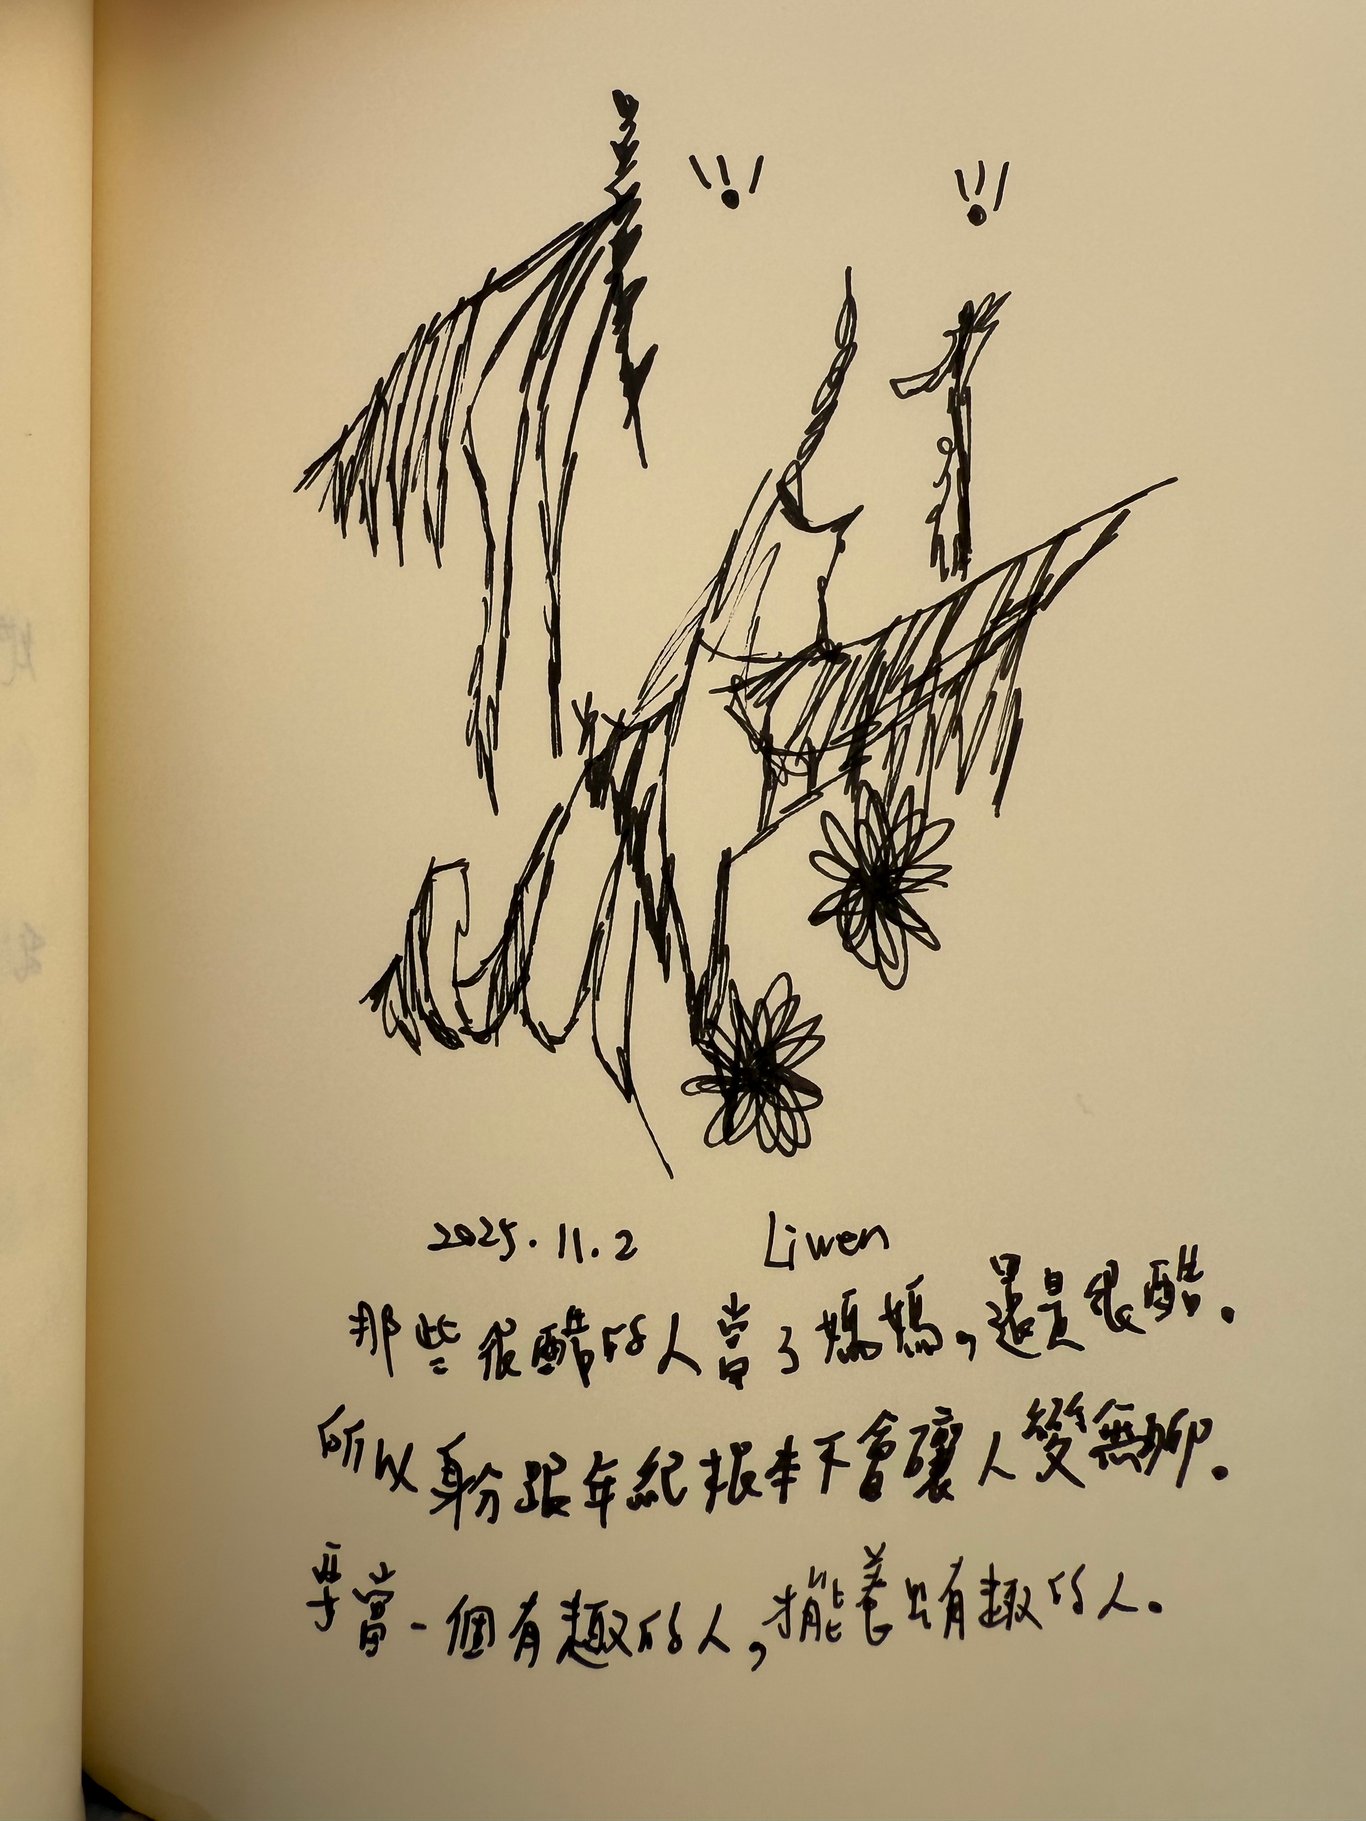 2025.11.2 Liwen
那些很酷的人當了媽媽,還是很酷.
所以身份跟年紀根本不會讓人變無聊.
要當一個有趣的人,才能養出有趣的人.